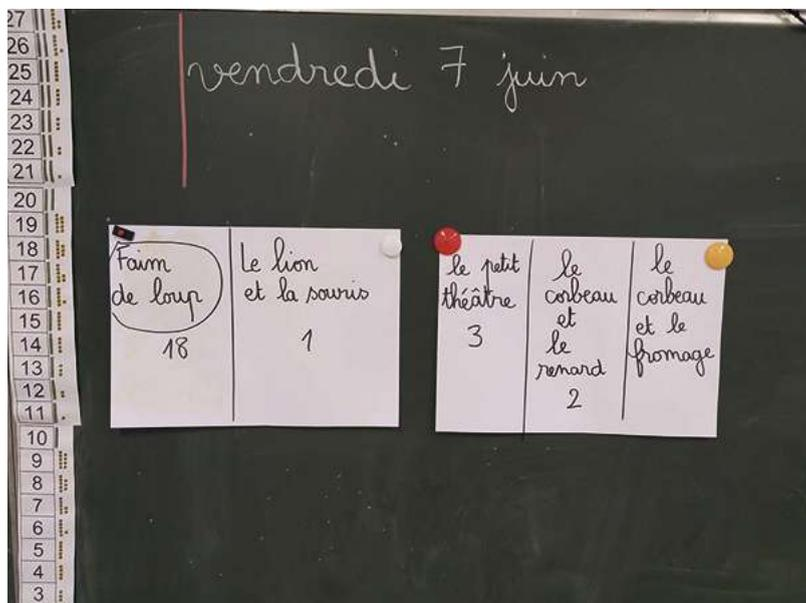 vendredi 7 juin
27
26
25
24
23
22
21
20
19
18
17
16
15
14
13
12
11
10
9
8
7
6
5
4
3
Faim
de loup
18
Le lion
et la souris
1
le petit
théâtre
3
le
corbeau
et
le
renard
2
le
corbeau
et le
fromage